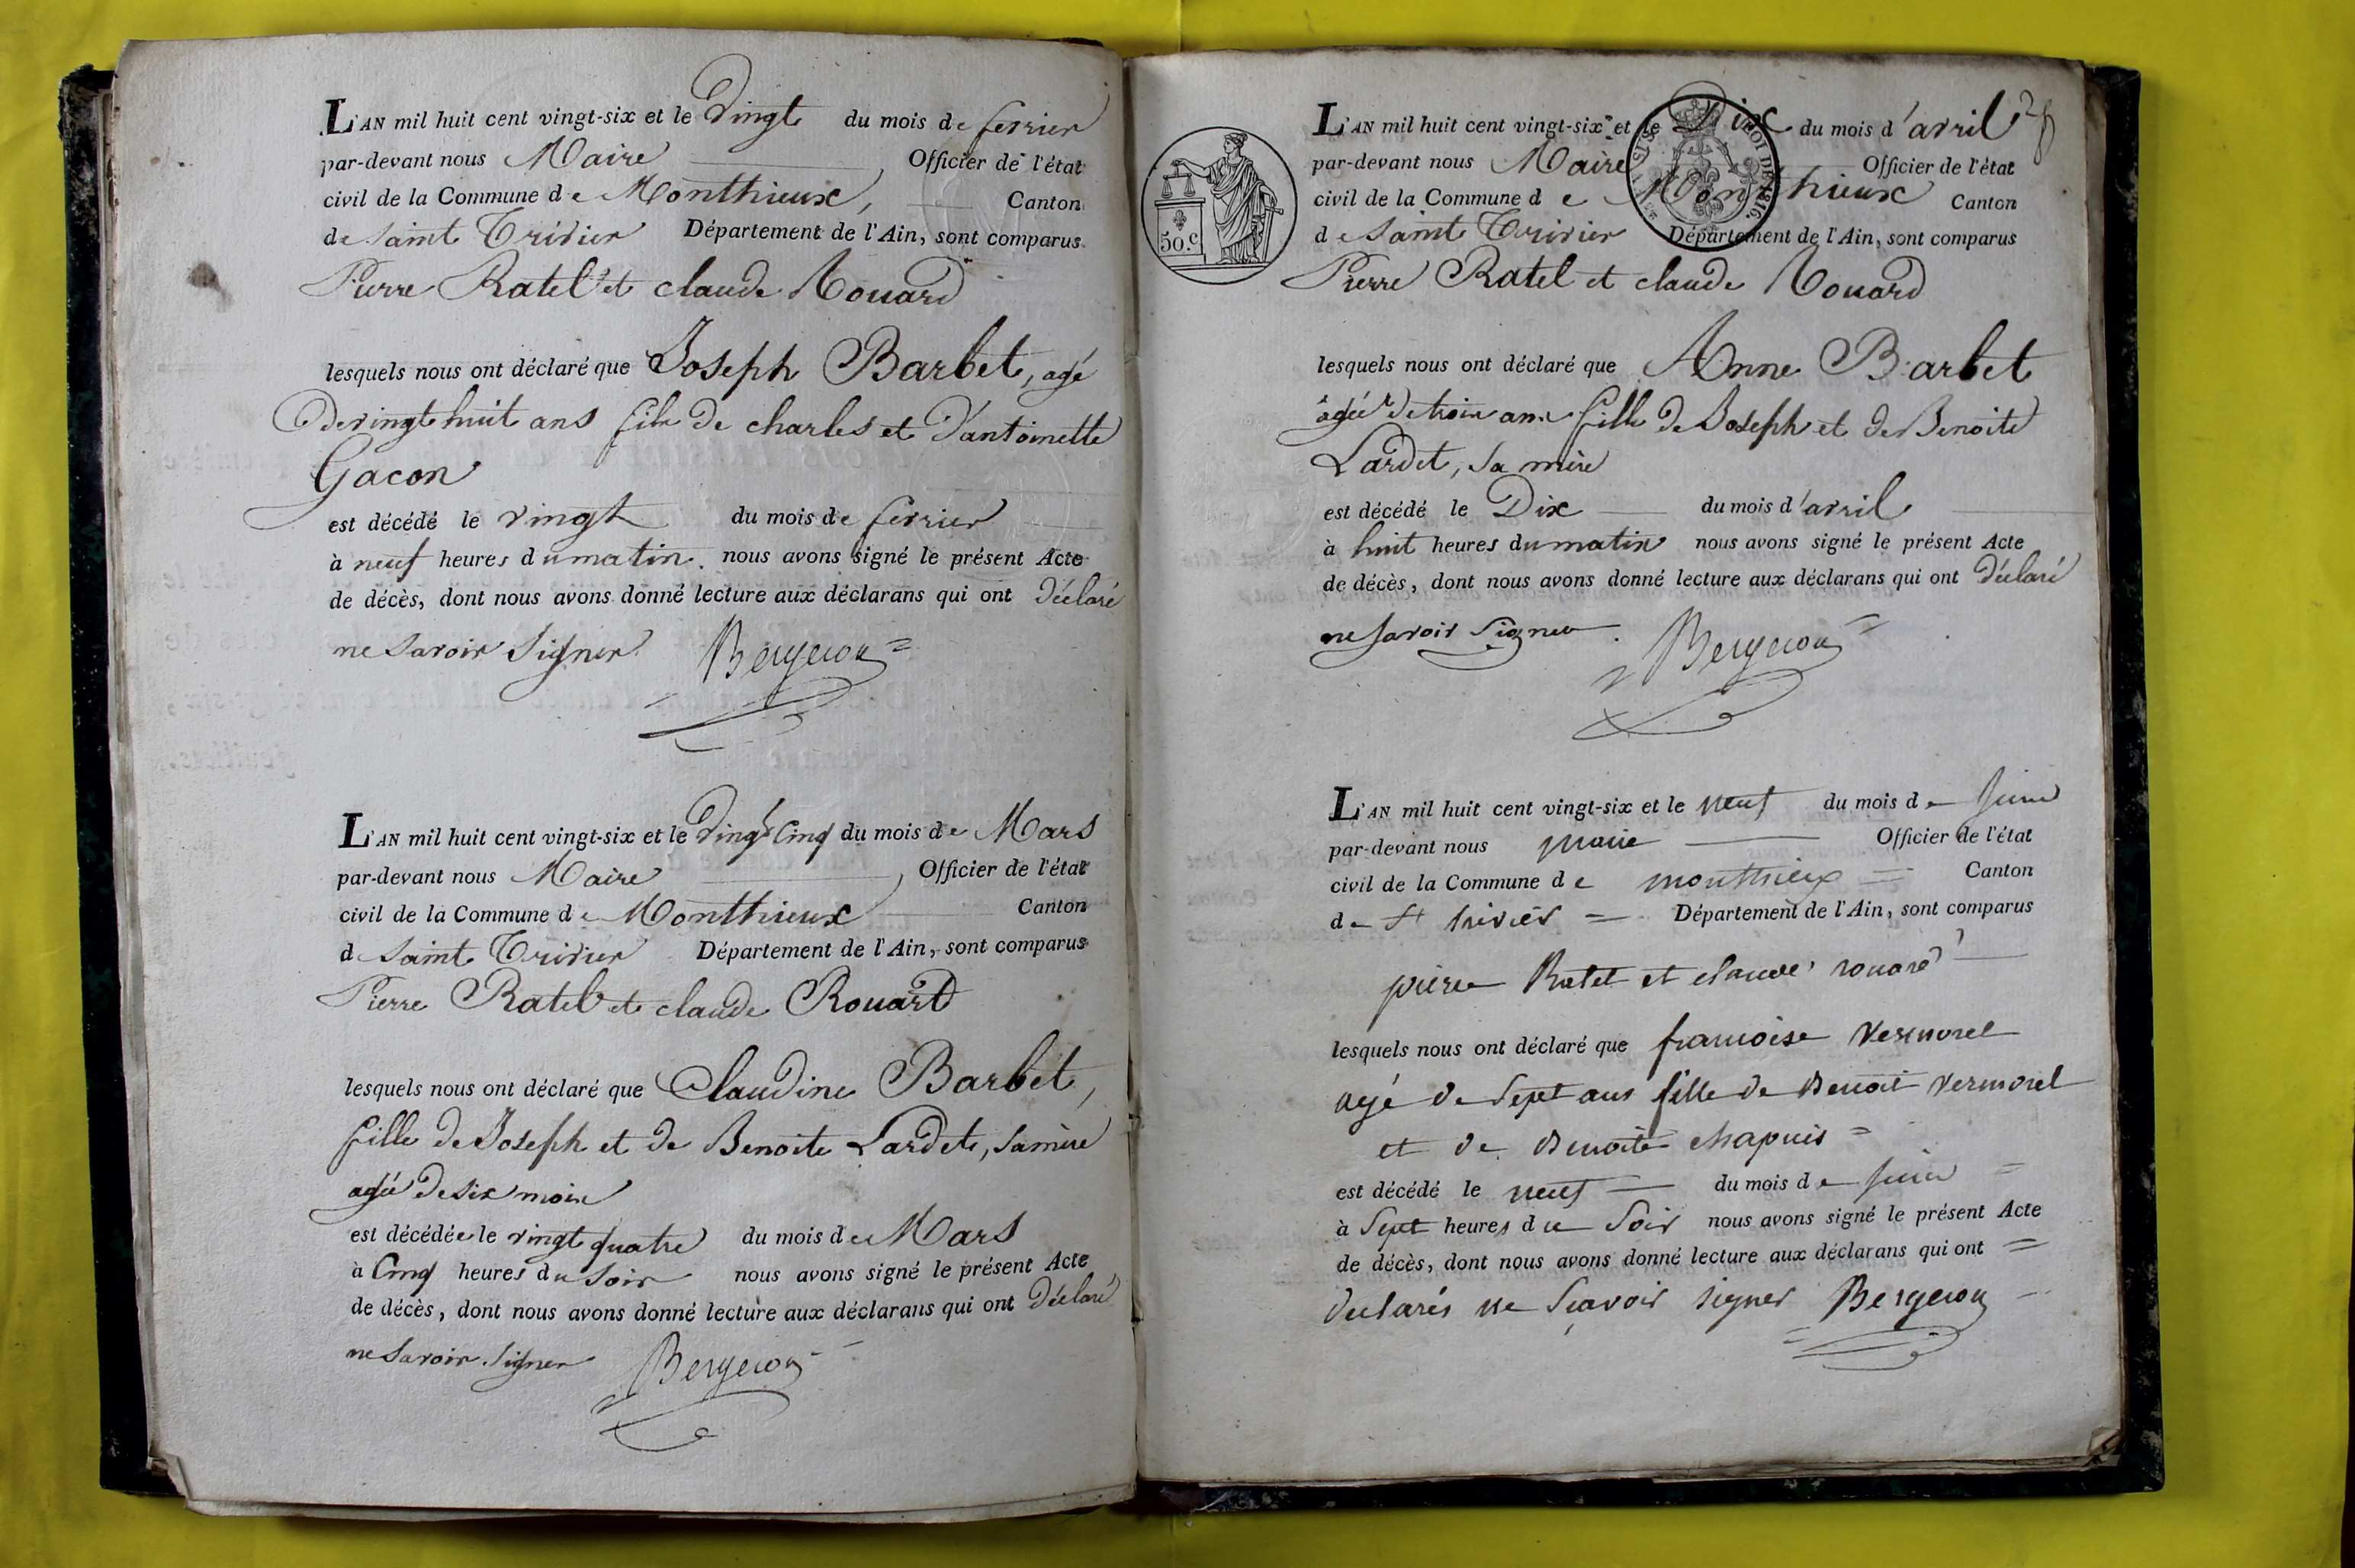 L'AN mil huit cent vingt-six et le vingt du mois de fevrier
par-devant nous Maire Officier de l'état
civil de la Commune de Monthieux, Canton
de Saint Trivier Département de l'Ain, sont comparus
Pierre Ratel et claude Rouard
lesquels nous ont déclaré que Joseph Barbet, agé
de vingt huit ans fils de charles et d'antoinette
Gacon
est décédé le vingt du mois de fevrier
à neuf heures du matin. nous avons signé le présent Acte
de décès, dont nous avons donné lecture aux déclarans qui ont déclaré
ne savoir signer Bergeron
L'AN mil huit cent vingt-six et le vingt Cinq du mois de Mars
par-devant nous Maire, Officier de l'état
civil de la Commune de Monthieux Canton
d Saint Trivier Département de l'Ain, sont comparus
Pierre Ratel et claude Rouard
lesquels nous ont déclaré que Claudine Barbet,
fille de Joseph et de Benoite Lardet, sa mère
agée de six mois
est décédée le vingt quatre du mois de Mars
à Cinq heures du soir nous avons signé le présent Acte
de décès, dont nous avons donné lecture aux déclarans qui ont déclaré
ne savoir signer Bergeron
L'AN mil huit cent vingt-six et le Dix du mois d'avril
par-devant nous Maire Officier de l'état
civil de la Commune de Monthieux Canton
de Saint Trivier Département de l'Ain, sont comparus
50.c
LOI DE 1816.
Pierre Ratel et claude Rouard
lesquels nous ont déclaré que Anne Barbet
agée de trois ans fille de Joseph et de Benoite
Lardet, sa mère
est décédé le Dix du mois d'avril
à huit heures du matin nous avons signé le présent Acte
de décès, dont nous avons donné lecture aux déclarans qui ont déclaré
ne savoir signer. Bergeron
L'AN mil huit cent vingt-six et le neuf du mois de juin
par-devant nous maire Officier de l'état
civil de la Commune de monthieux Canton
de St trivier Département de l'Ain, sont comparus
pierre Ratel et claude rouard
lesquels nous ont déclaré que francoise vermorel
agé de sept ans fille de Benoit vermorel
et de Benoite chapuis
est décédé le neuf du mois de juin
à sept heures du soir nous avons signé le présent Acte
de décès, dont nous avons donné lecture aux déclarans qui ont
declarés ne sçavoir signer Bergeron